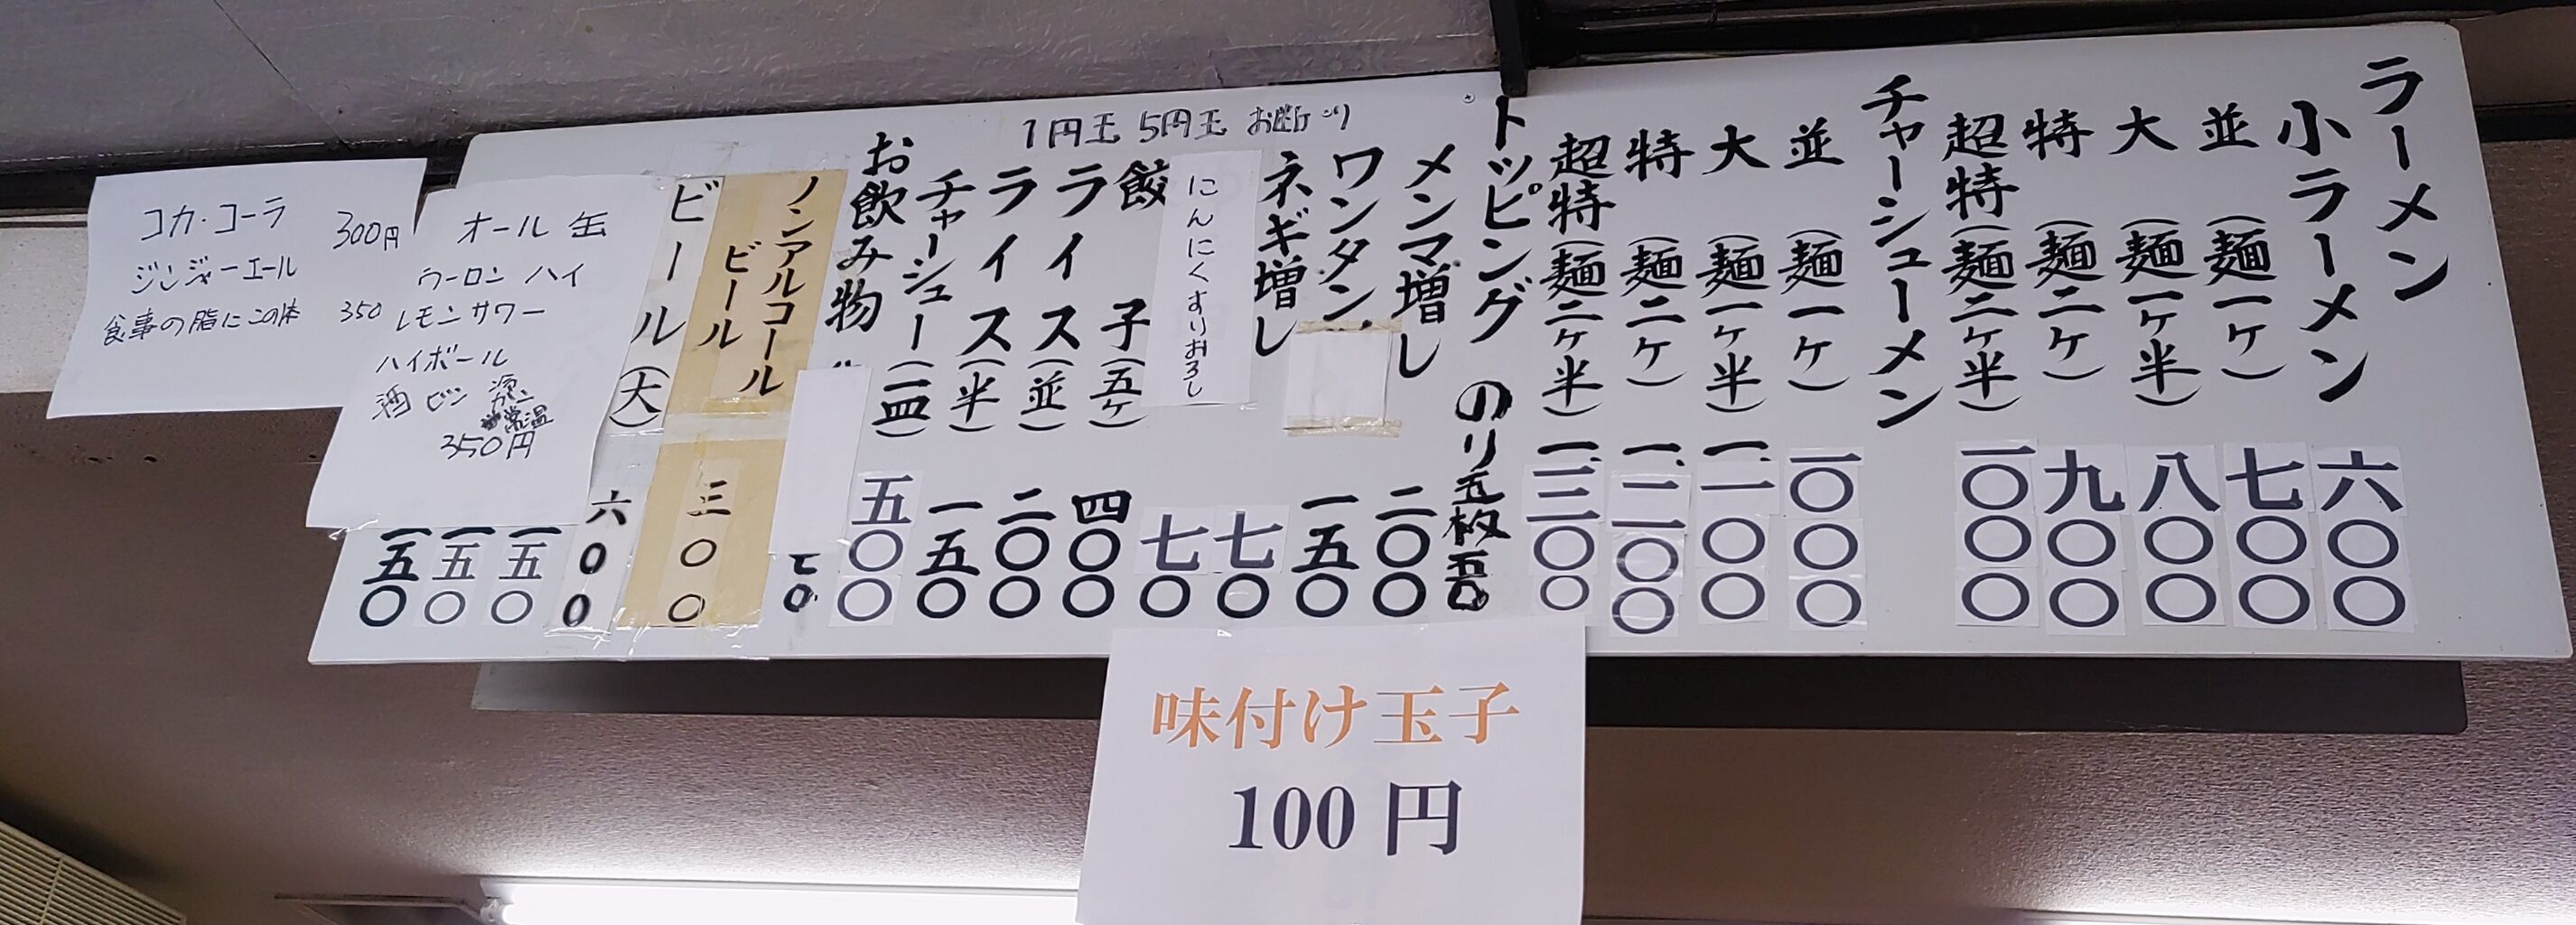 ラーメン
小ラーメン 六〇〇
並(麺一ケ) 七〇〇
大(麺一ケ半) 八〇〇
特(麺二ケ) 九〇〇
超特(麺二ケ半) 一〇〇〇
チャーシューメン
並(麺一ケ) 一〇〇〇
大(麺一ケ半) 一一〇〇
特(麺二ケ) 一二〇〇
超特(麺二ケ半) 一三〇〇
トッピング のり五枚 五〇
メンマ増し 二〇〇
ワンタン 一五〇
ネギ増し 七〇
にんにくすりおろし 七〇
餃子(五ケ) 四〇〇
ライス(並) 二〇〇
ライス(半) 一五〇
チャーシュー(一皿) 五〇〇
お飲み物
ノンアルコール
ビール 三〇〇
ビール(大) 六〇〇
一五〇
一五〇
一五〇
1円玉 5円玉 お断り
オール缶
ウーロンハイ
レモンサワー
ハイボール
酒ビン 冷
カン
常温
350円
コカ・コーラ 300円
ジンジャーエール
食事の脂にこの1本 350
味付け玉子
100円